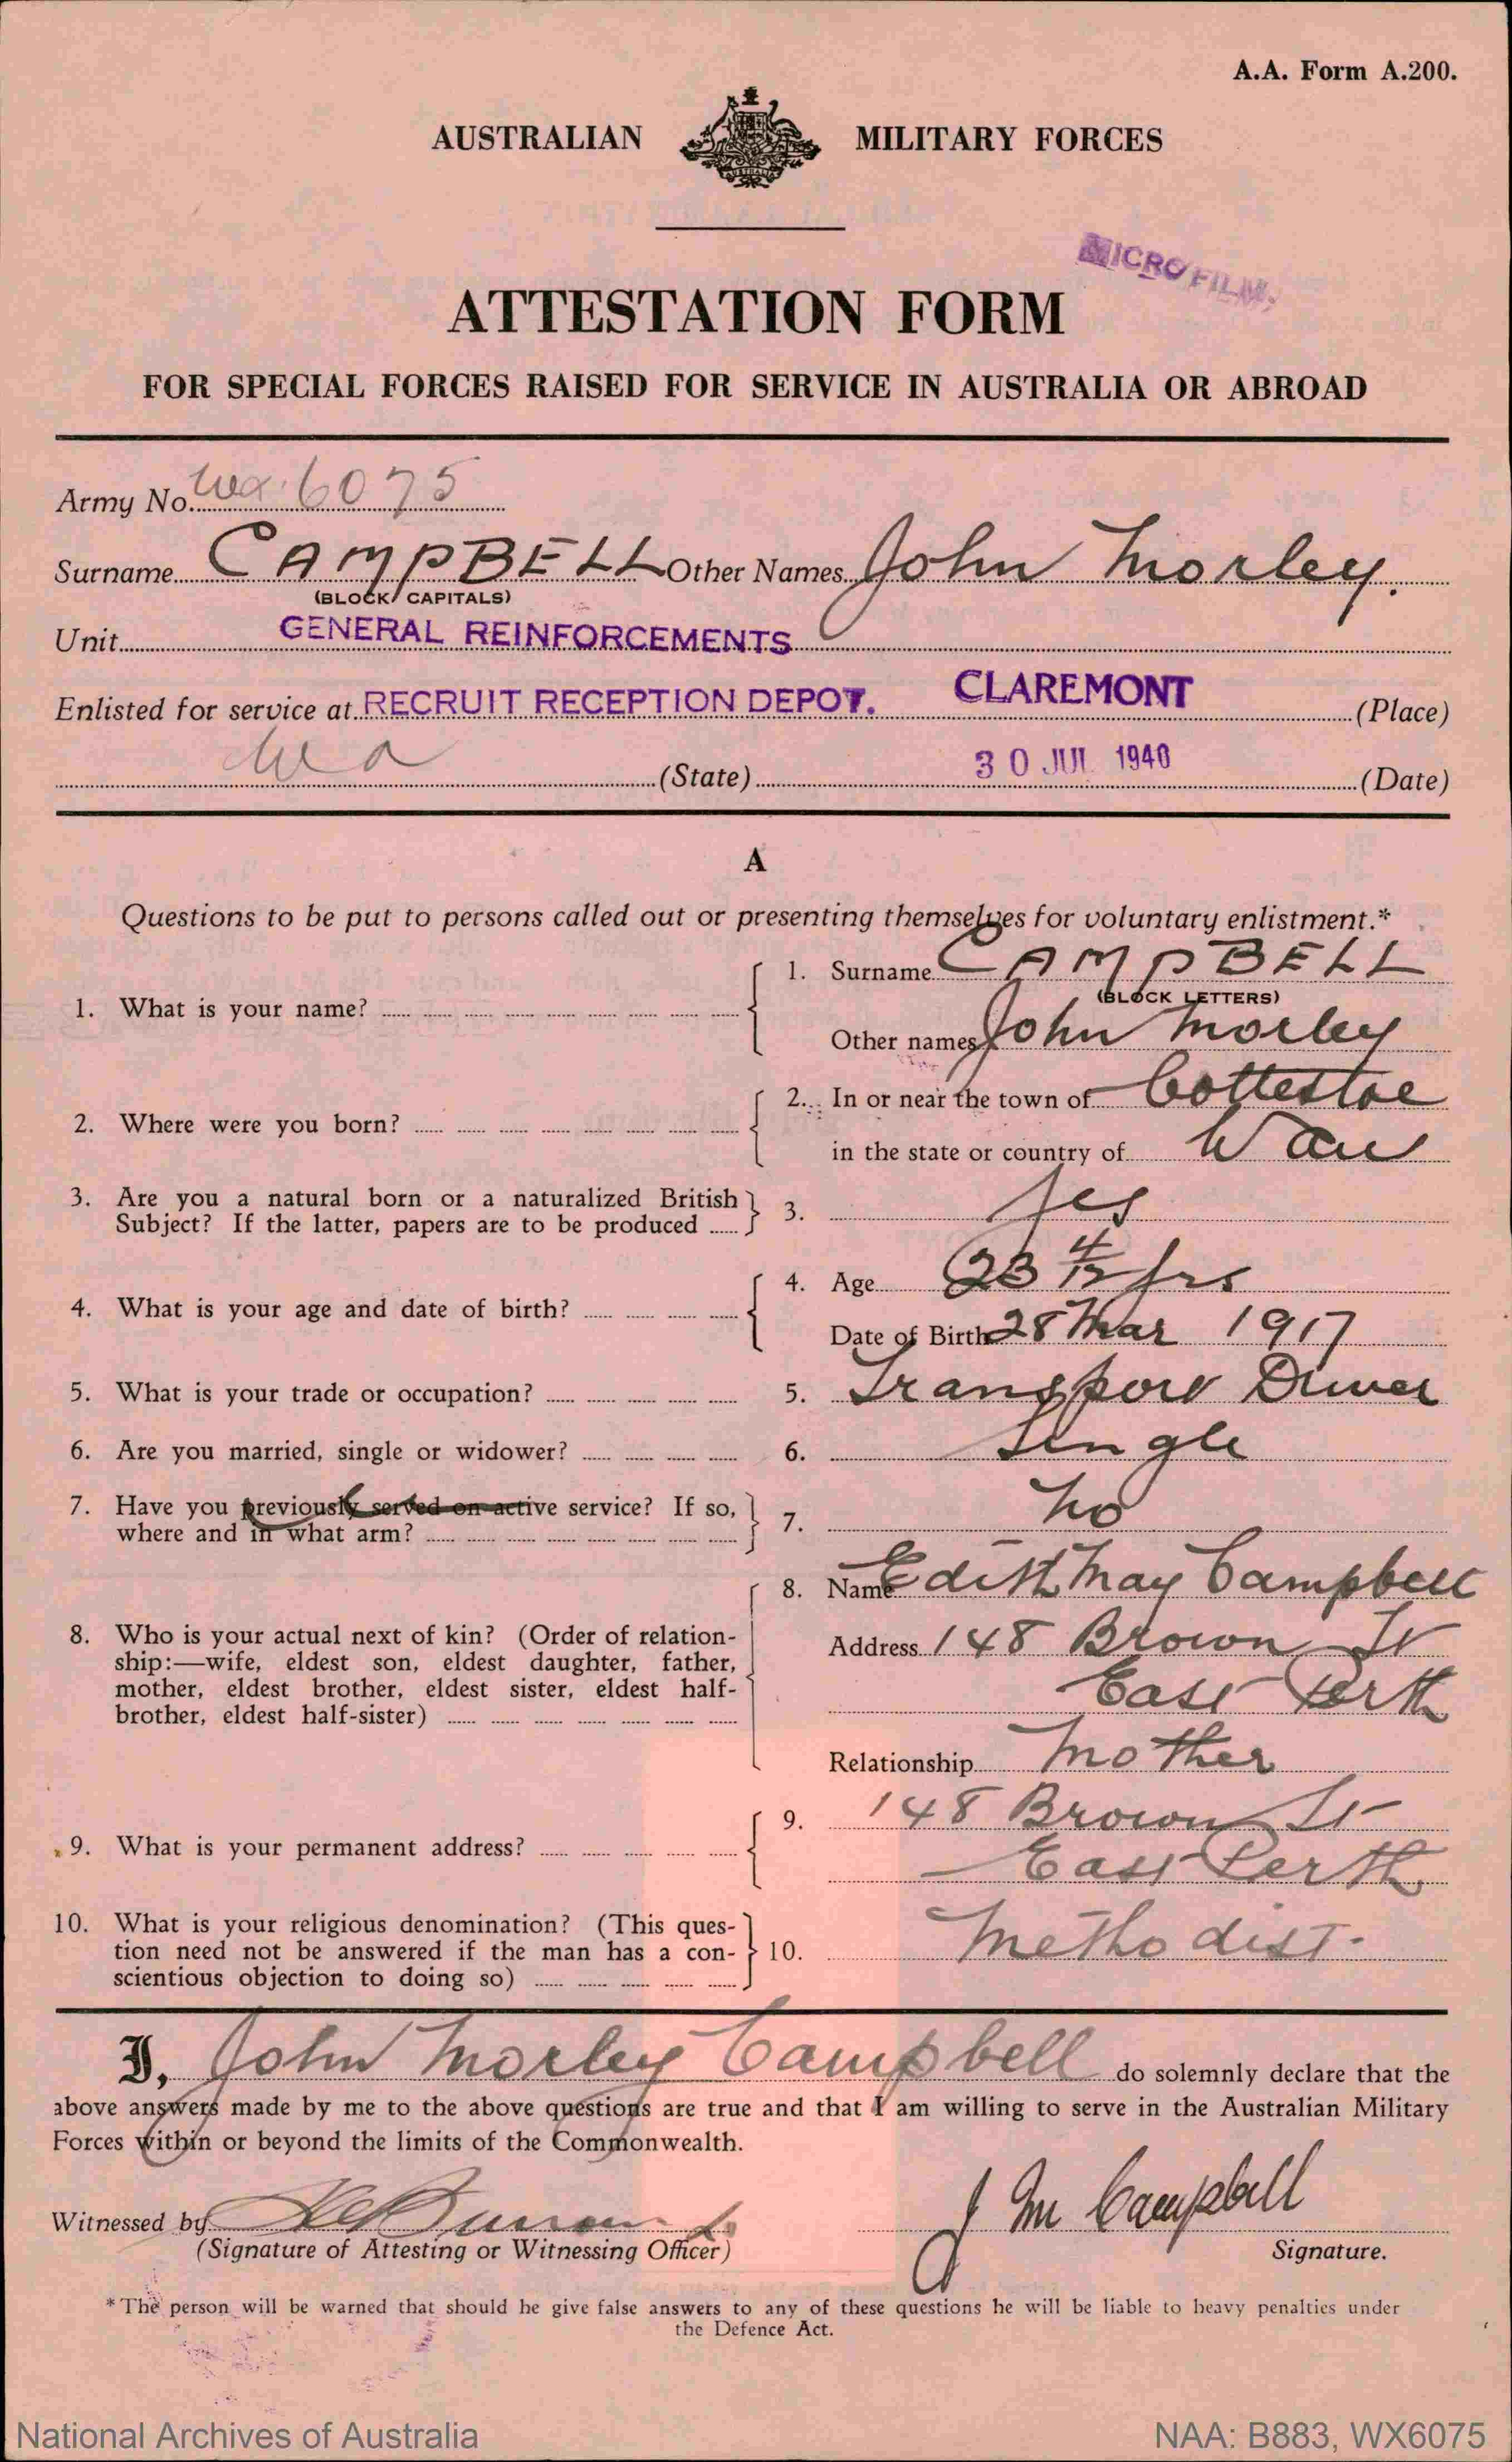 A.A. Form A.200.
AUSTRALIAN MILITARY FORCES
MICROFILM.
ATTESTATION FORM
FOR SPECIAL FORCES RAISED FOR SERVICE IN AUSTRALIA OR ABROAD
Army No. WX 6075
Surname CAMPBELL Other Names John Morley.
(BLOCK CAPITALS)
Unit GENERAL REINFORCEMENTS
Enlisted for service at RECRUIT RECEPTION DEPOT. CLAREMONT (Place)
WA (State) 30 JUL 1940 (Date)
A
Questions to be put to persons called out or presenting themselves for voluntary enlistment.*
1. What is your name? 1. Surname CAMPBELL
(BLOCK LETTERS)
Other names John Morley
2. Where were you born? 2. In or near the town of Cottesloe
in the state or country of W Aus
3. Are you a natural born or a naturalized British
Subject? If the latter, papers are to be produced 3. Yes
4. What is your age and date of birth? 4. Age 23 4/12 yrs
Date of Birth 28 Mar 1917
5. What is your trade or occupation? 5. Transport Driver
6. Are you married, single or widower? 6. Single
7. Have you previously served on active service? If so,
where and in what arm? 7. No
8. Who is your actual next of kin? (Order of relation-
ship:—wife, eldest son, eldest daughter, father,
mother, eldest brother, eldest sister, eldest half-
brother, eldest half-sister)
8. Name Edith May Campbell
Address 148 Brown St
East Perth
Relationship Mother
9. What is your permanent address? 9. 148 Brown St
East Perth
10. What is your religious denomination? (This ques-
tion need not be answered if the man has a con-
scientious objection to doing so) 10. Methodist.
I, John Morley Campbell do solemnly declare that the
above answers made by me to the above questions are true and that I am willing to serve in the Australian Military
Forces within or beyond the limits of the Commonwealth.
Witnessed by J M Campbell
(Signature of Attesting or Witnessing Officer) Signature.
*The person will be warned that should he give false answers to any of these questions he will be liable to heavy penalties under
the Defence Act.
National Archives of Australia NAA: B883, WX6075